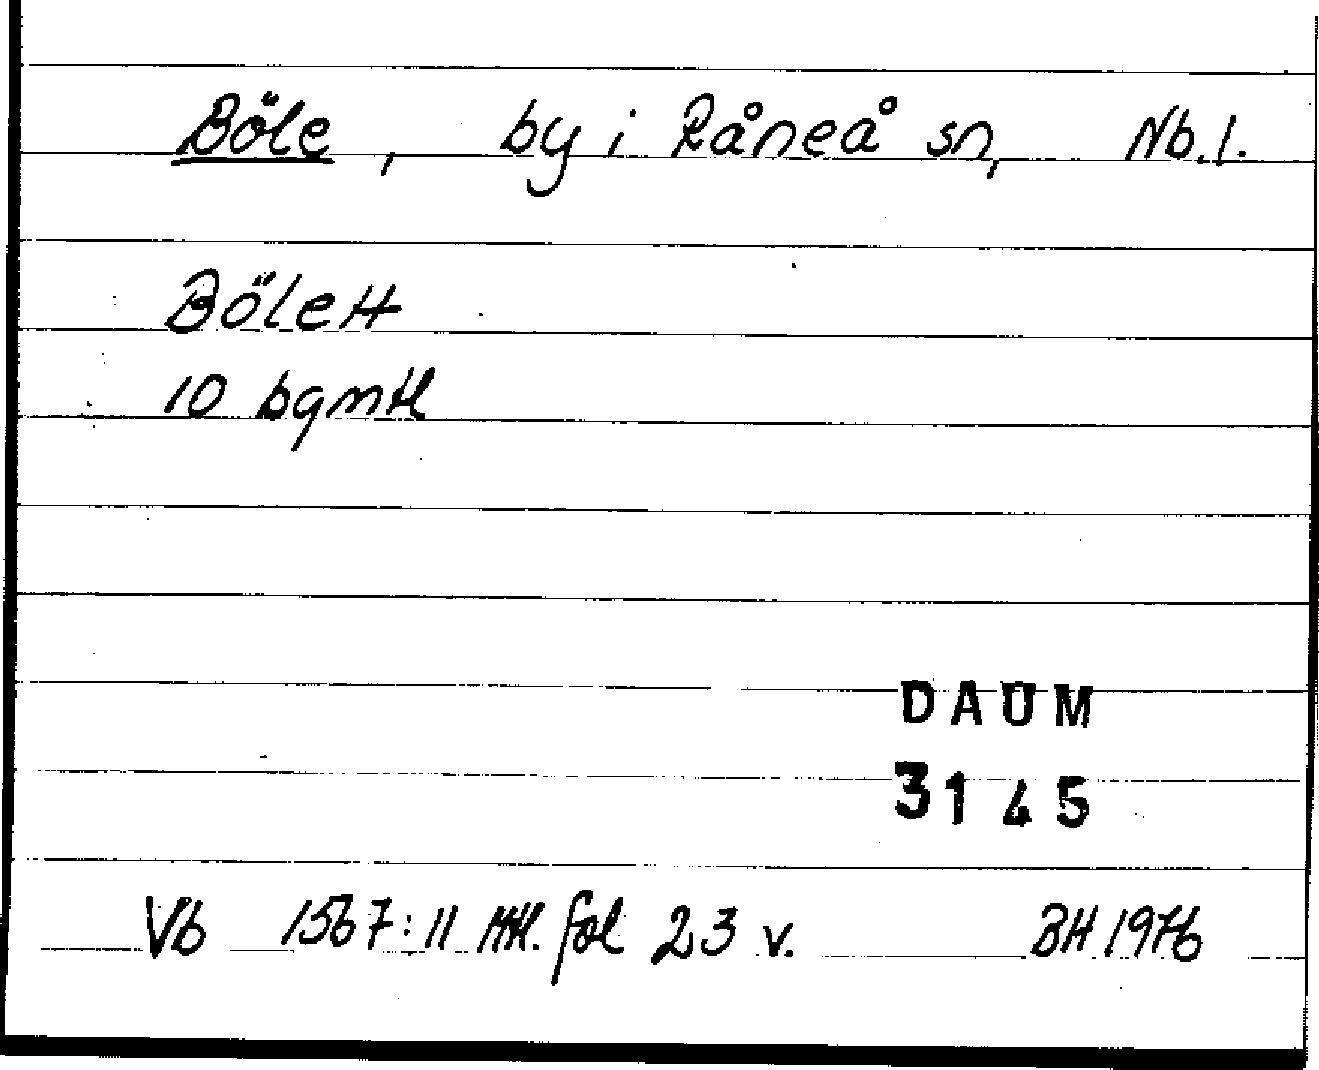 Böle, by i Råneå sn, Nb.l.
Bölett
10 bqmtl
DAUM
3145
Vb 1567:11 Mtl. fol 23 v. BH 1976